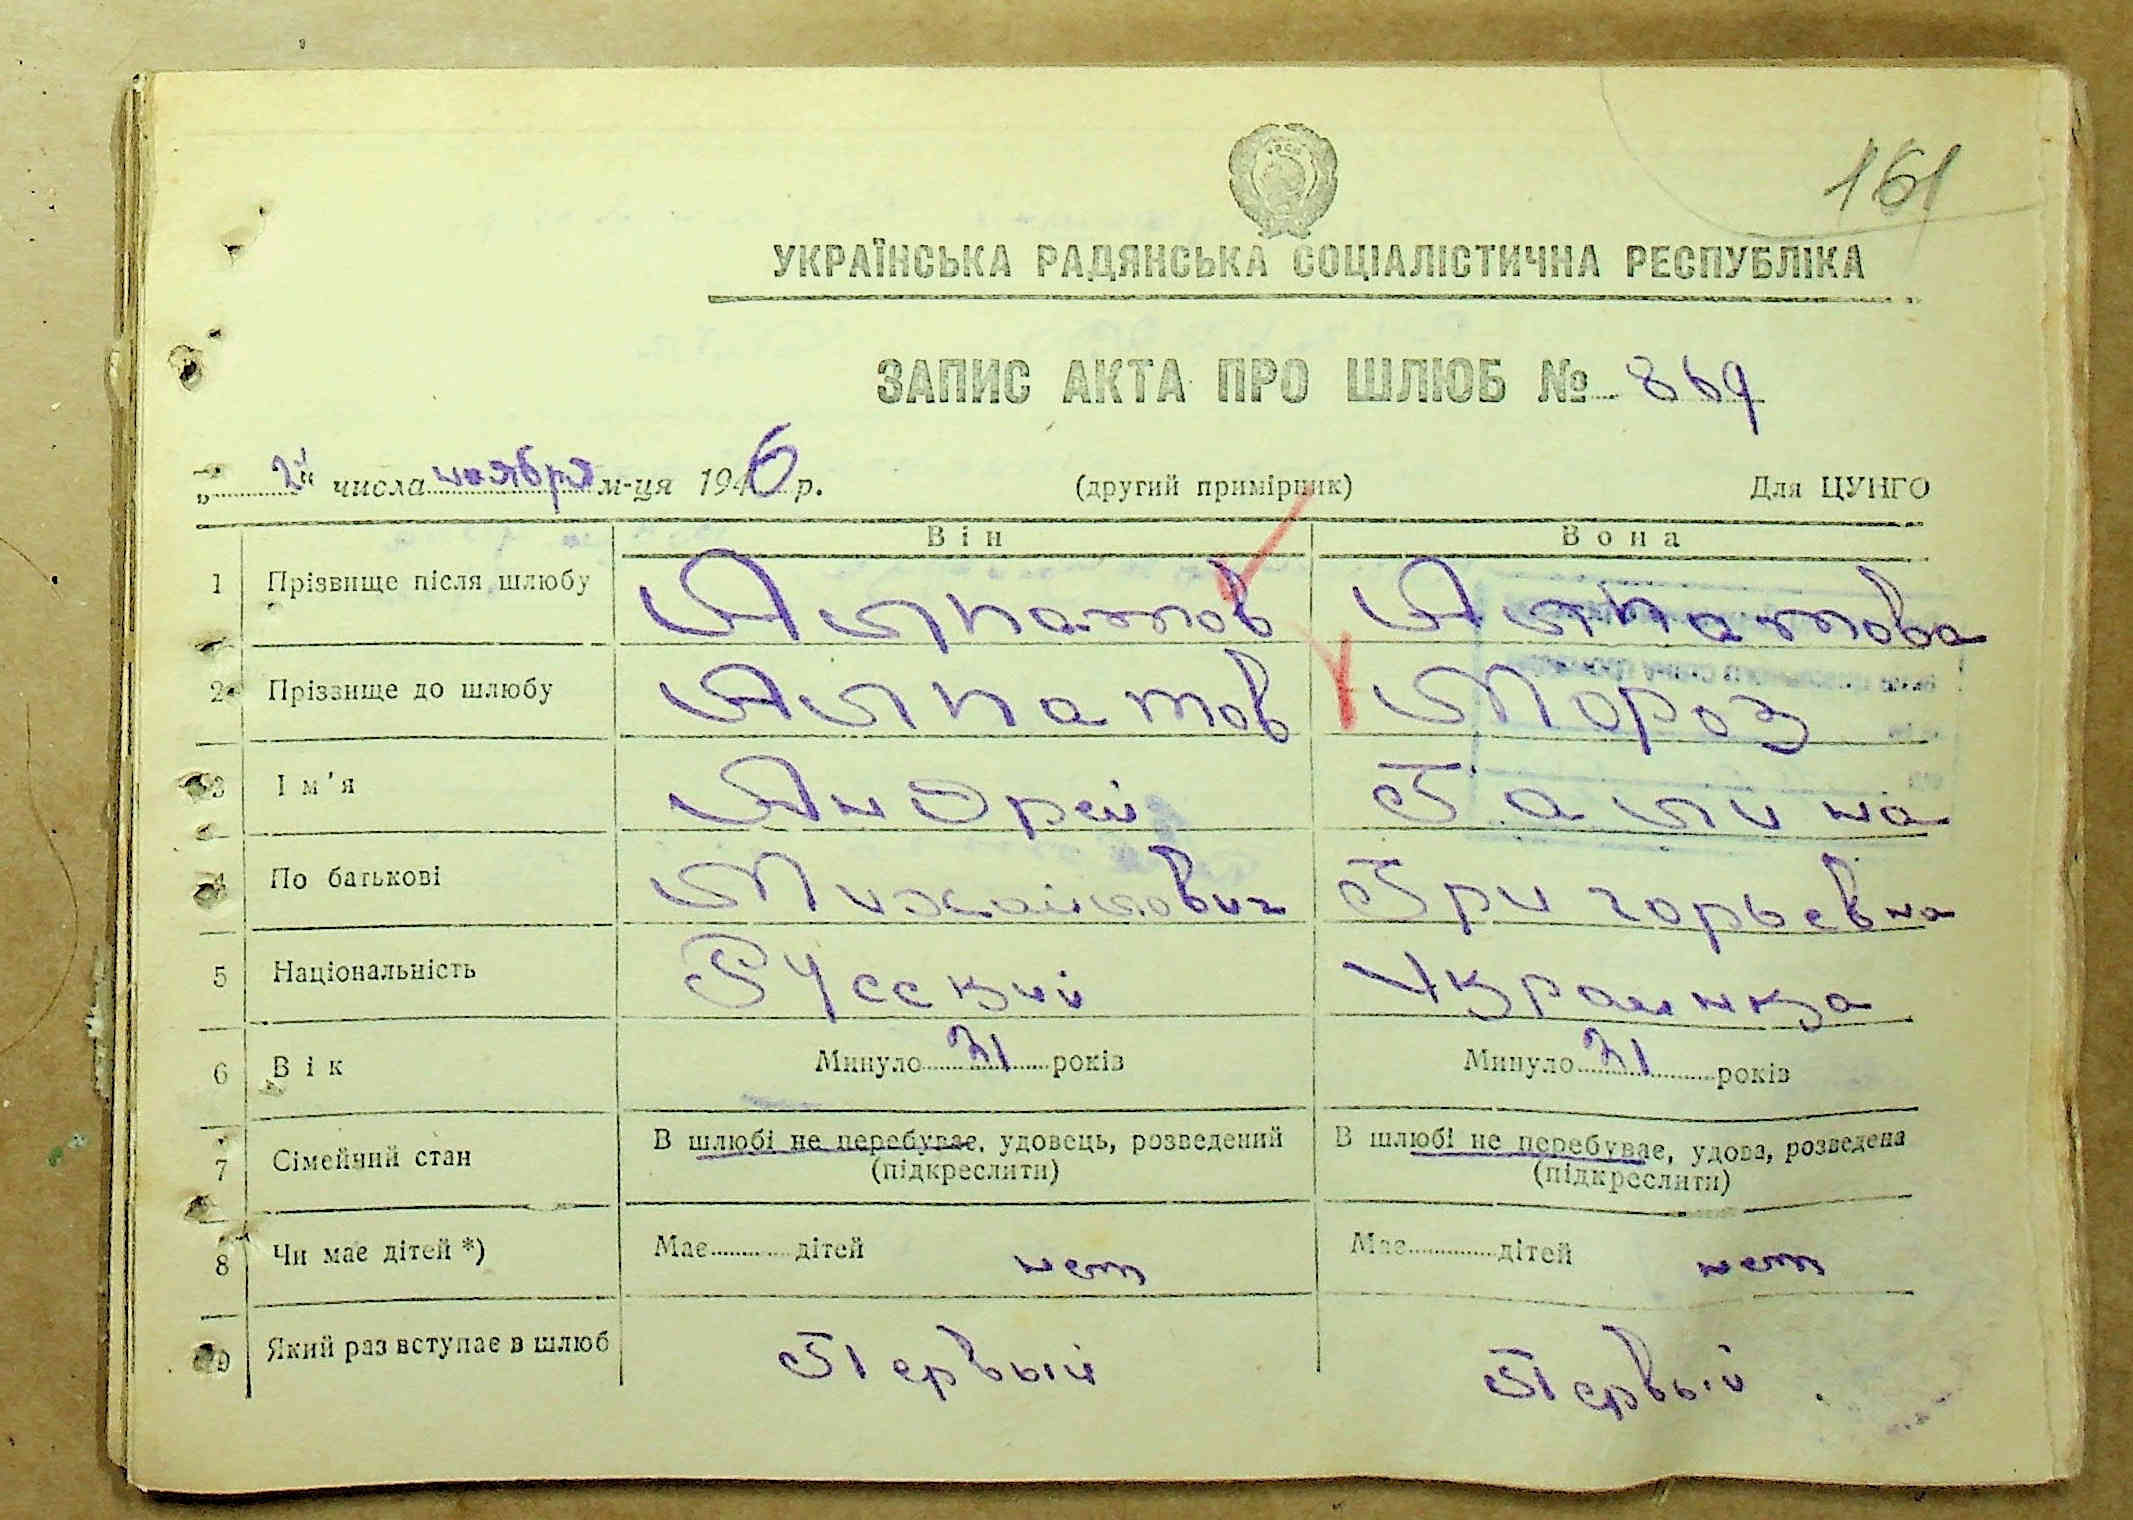 161
УКРАЇНСЬКА РАДЯНСЬКА СОЦІАЛІСТИЧНА РЕСПУБЛІКА
ЗАПИС АКТА ПРО ШЛЮБ № 869
„ 2й числа ноября м-ця 1946 р. (другий примірник) Для ЦУНГО
Він Вона
1 Прізвище після шлюбу Алпатов Алпатова
2 Прізвище до шлюбу Алпатов Мороз
3 Ім'я Андрей Галина
4 По батькові Михайлович Григорьевна
5 Національність Русский Украинка
6 Вік Минуло 31 років Минуло 31 років
7 Сімейний стан В шлюбі не перебуває, удовець, розведений В шлюбі не перебуває, удова, розведена
(підкреслити) (підкреслити)
8 Чи має дітей *) Має дітей нет Має дітей нет
9 Який раз вступає в шлюб Первый Первый